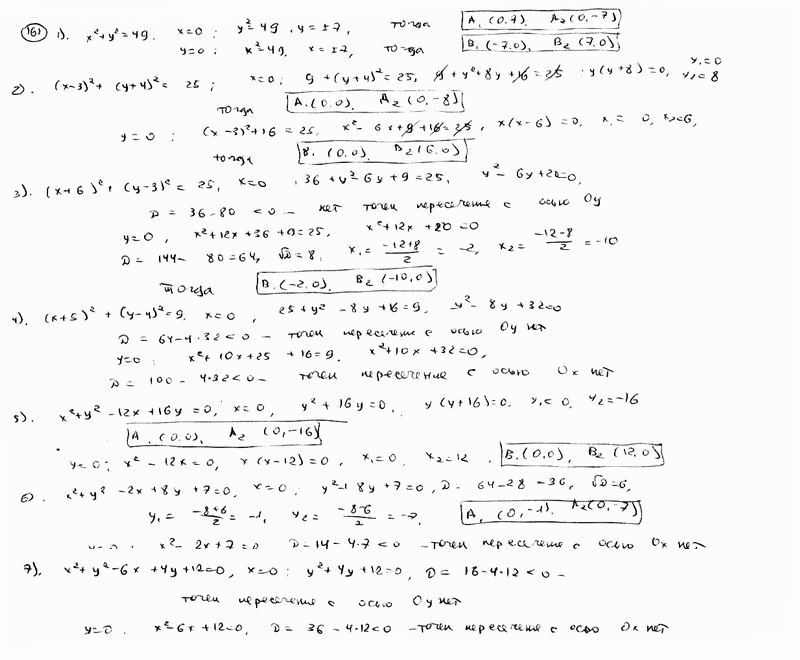 161 1). x²+y²=49. x=0: y²=49, y=±7, тогда A₁(0,7). A₂(0,-7)
y=0: x²=49. x=±7, тогда B₁(-7,0), B₂(7,0)
2). (x-3)²+(y+4)²=25; x=0; 9+(y+4)²=25, 9+y²+8y+16=25: y(y+8)=0, y₁=0 y₂=8
тогда A₁(0,0). A₂(0,-8)
y=0: (x-3)²+16=25, x²-6x+9+16=25, x(x-6)=0, x₁=0, x₂=6,
тогда B₁(0,0). B₂(6,0)
3). (x+6)²+(y-3)²=25, x=0, 36+y²-6y+9=25, y²-6y+20=0,
D=36-80<0 - нет точек пересечение с осью Oy
y=0, x²+12x+36+9=25, x²+12x+20=0
D=144-80=64, √D=8, x₁=(-12+8)/2=-2, x₂=(-12-8)/2=-10
Тогда B₁(-2,0). B₂(-10,0)
4). (x+5)²+(y-4)²=9. x=0, 25+y²-8y+16=9, y²-8y+32=0
D=64-4·32<0 - точек пересечение с осью Oy нет
y=0: x²+10x+25+16=9. x²+10x+32=0,
D=100-4·32<0 - точек пересечение с осью Ox нет
5). x²+y²-12x+16y=0, x=0, y²+16y=0, y(y+16)=0. y₁=0, y₂=-16
A₁(0,0), A₂(0,-16)
y=0; x²-12x=0, x(x-12)=0, x₁=0, x₂=12. B₁(0,0), B₂(12,0)
6). x²+y²-2x+8y+7=0, x=0; y²+8y+7=0, D=64-28=36, √D=6,
y₁=(-8+6)/2=-1, y₂=(-8-6)/2=-7. A₁(0,-1). A₂(0,-7)
y=0. x²-2x+7=0 D=14-4·7<0 - точек пересечение с осью Ox нет
7). x²+y²-6x+4y+12=0, x=0: y²+4y+12=0, D=16-4·12<0 -
точек пересечение с осью Oy нет
y=0. x²-6x+12=0, D=36-4·12<0 - точек пересечение с осью Ox нет